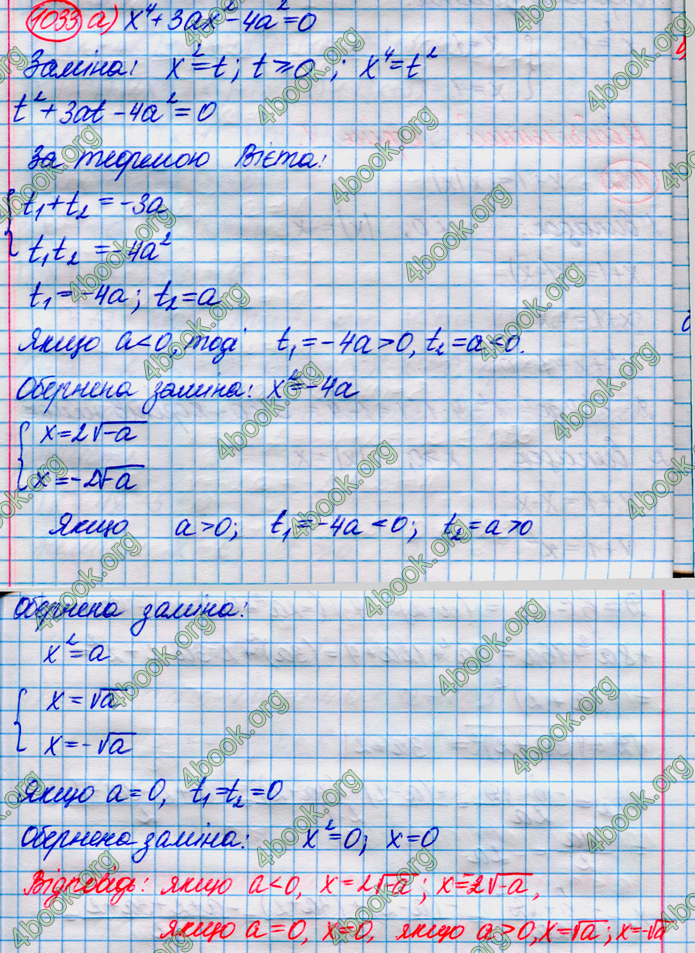 1033 а) x⁴+3ax²-4a²=0
Заміна: x²=t; t≥0; x⁴=t²
t²+3at-4a²=0
За теоремою Вієта:
{ t₁+t₂=-3a
t₁t₂=-4a²
t₁=-4a; t₂=a
Якщо a<0, тоді t₁=-4a>0, t₂=a<0.
Обернена заміна: x²=-4a
{ x=2√-a
x=-2√-a
Якщо a>0; t₁=-4a<0; t₂=a>0
Обернена заміна:
x²=a
{ x=√a
x=-√a
Якщо a=0, t₁=t₂=0
Обернена заміна: x²=0; x=0
Відповідь: якщо a<0, x=2√-a; x=-2√-a,
якщо a=0, x=0, якщо a>0, x=√a; x=-√a
4book.org